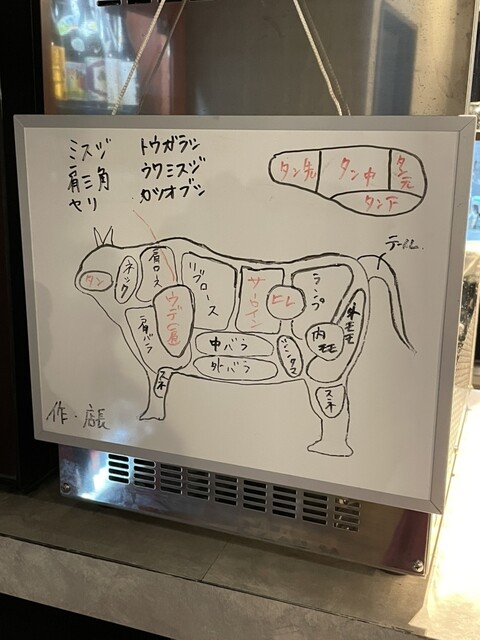 ミスジ
肩三角
ヤリ
トウガラシ
ウワミスジ
カツオブシ
タン先
タン中
タン元
タン下
テール
タン
ネック
肩ロース
リブロース
サーロイン
ヒレ
ランプ
外モモ
ウデ(肩)
肩バラ
中バラ
外バラ
内モモ
スネ
スネ
作・店長